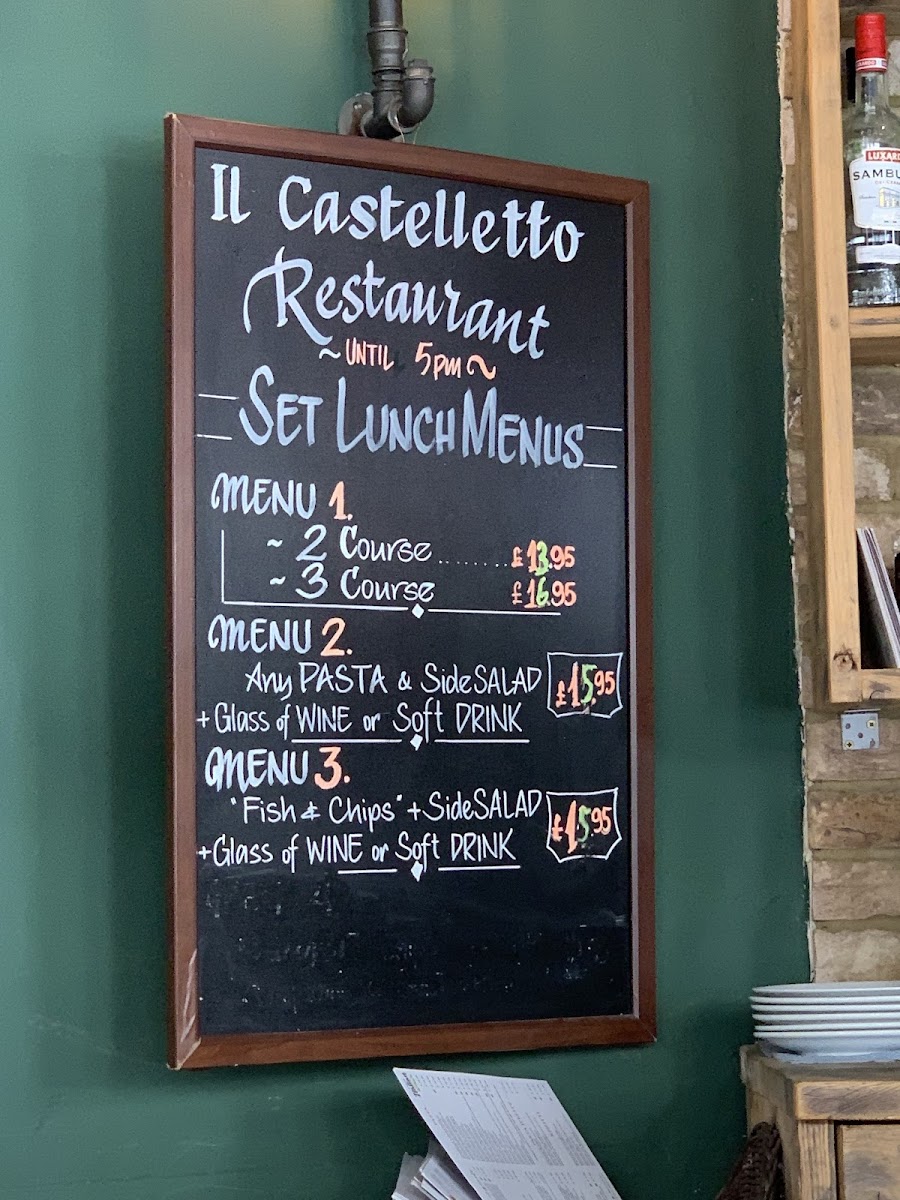 Il Castelletto
Restaurant
~ UNTIL 5pm ~
SET LUNCH MENUS
MENU 1.
~ 2 Course ........ £13.95
~ 3 Course £16.95
MENU 2.
Any PASTA & Side SALAD £15.95
+ Glass of WINE or Soft DRINK
MENU 3.
"Fish & Chips" + Side SALAD £15.95
+ Glass of WINE or Soft DRINK
LUXARD
SAMBU